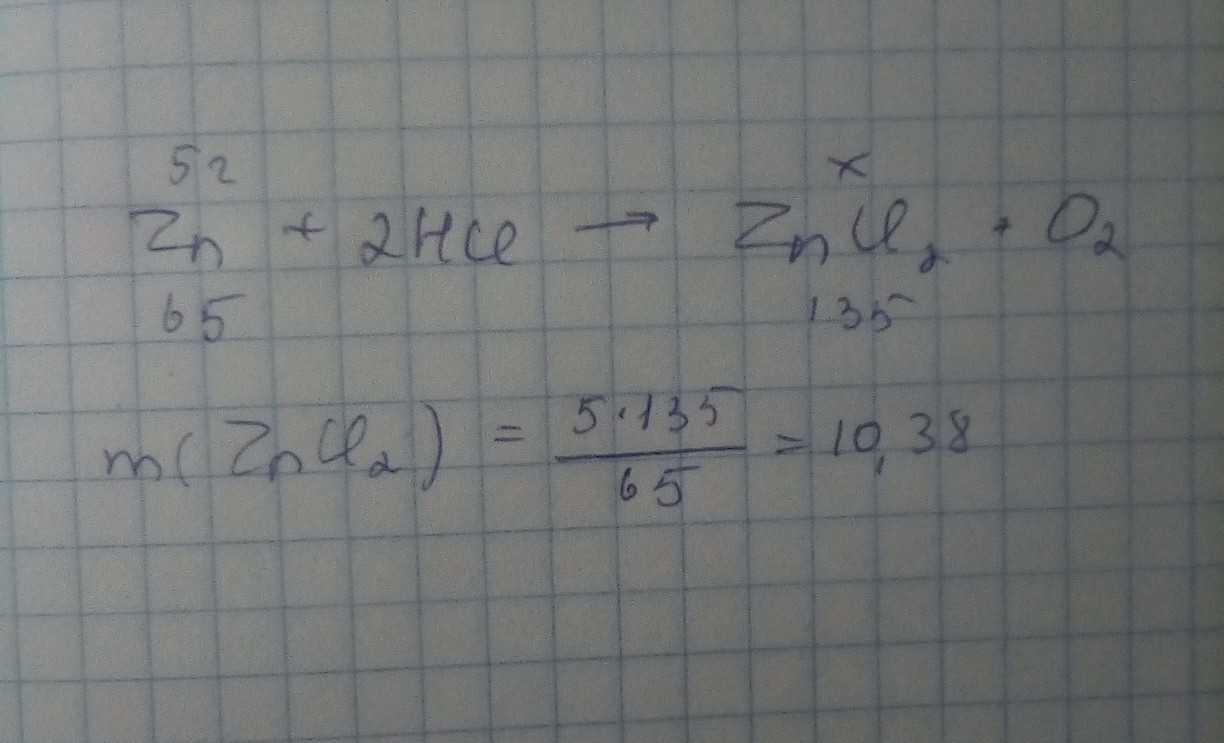 5г x
Zn + 2HCl → ZnCl₂ + O₂
65 135
m(ZnCl₂) = 5·135 / 65 = 10,38